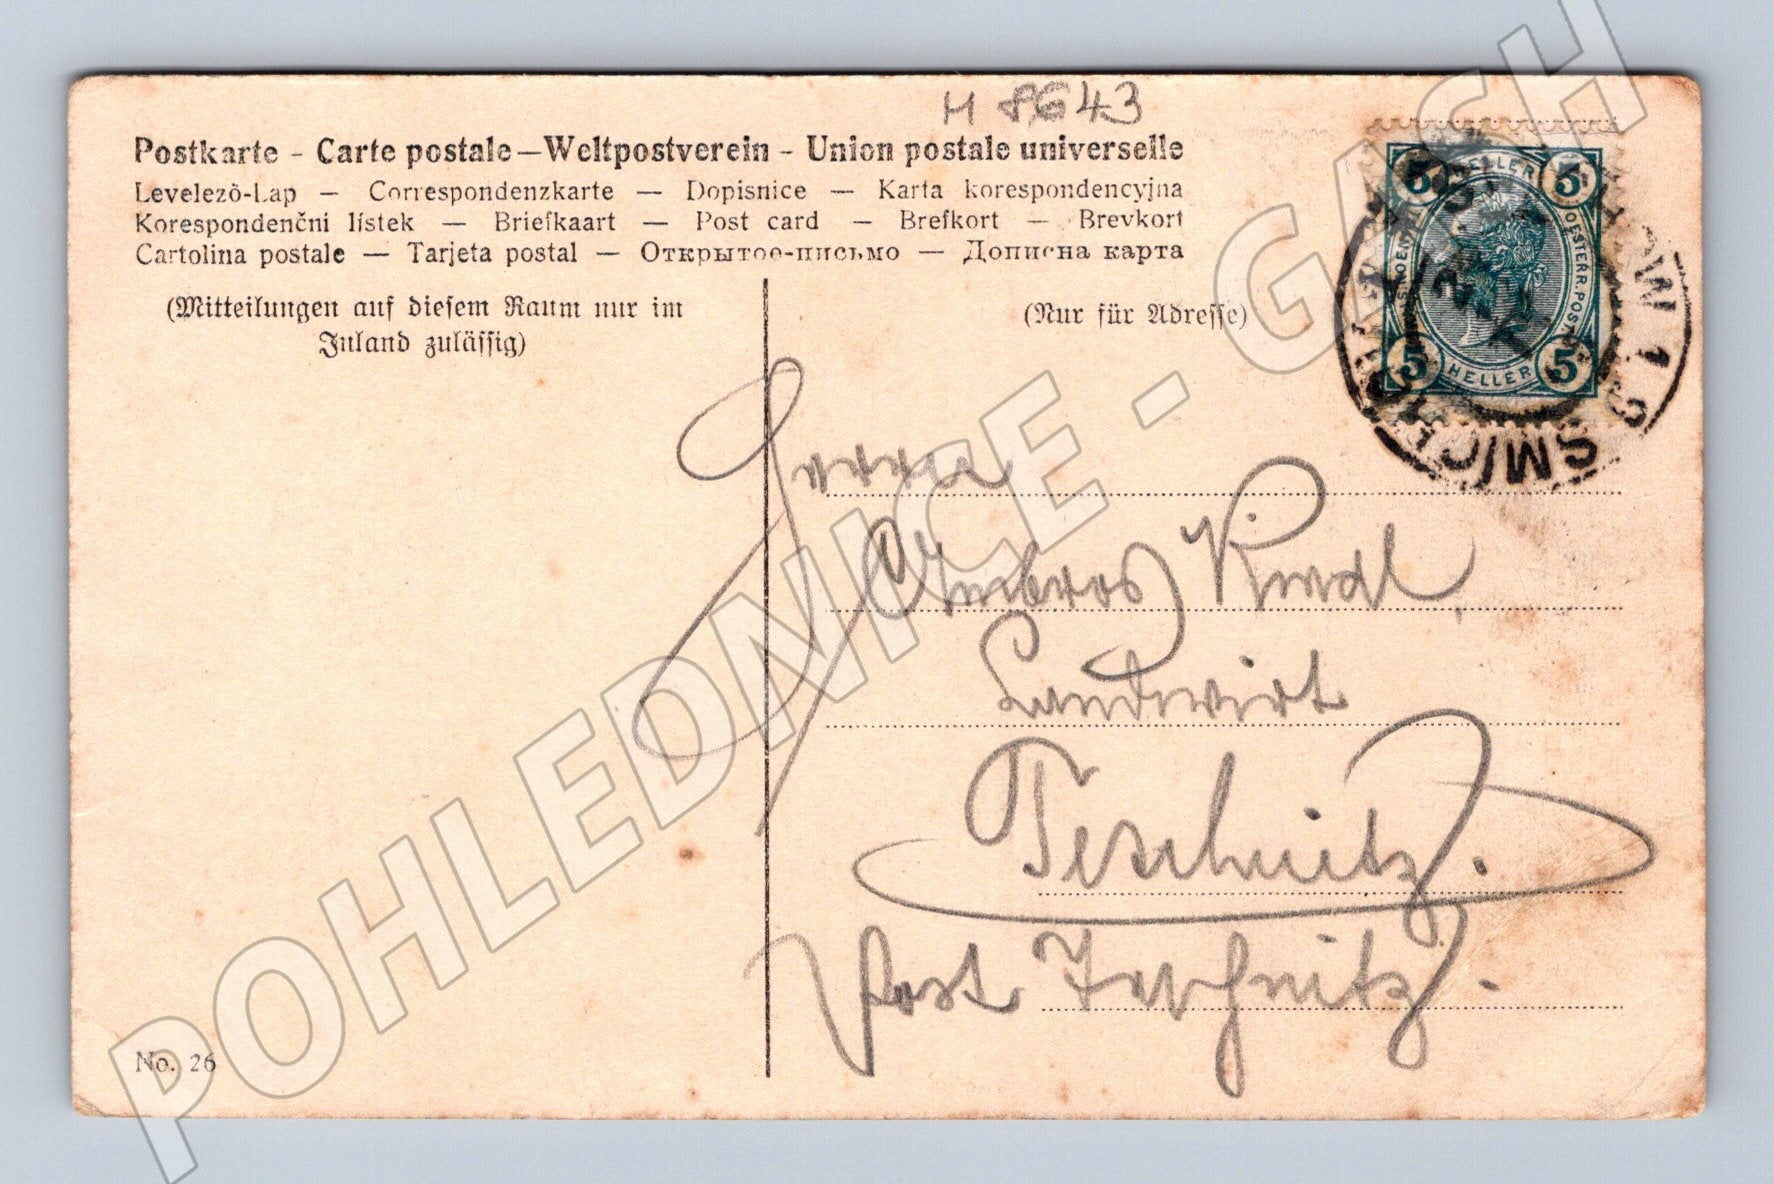 H 8643
Postkarte - Carte postale — Weltpostverein - Union postale universelle
Levelező-Lap — Correspondenzkarte — Dopisnice — Karta korespondencyjna
Korespondenčni lístek — Briefkaart — Post card — Brefkort — Brevkort
Cartolina postale — Tarjeta postal — Открытое-письмо — Дописна карта
(Mitteilungen auf diesem Raum nur im
Inland zulässig)
(Nur für Adresse)
5 HELLER 5
5 HELLER 5
SMICHOW 1
Herrn
Ambros
Landwirt
Teschnitz.
Post
No. 26
POHLEDNICE - GASH